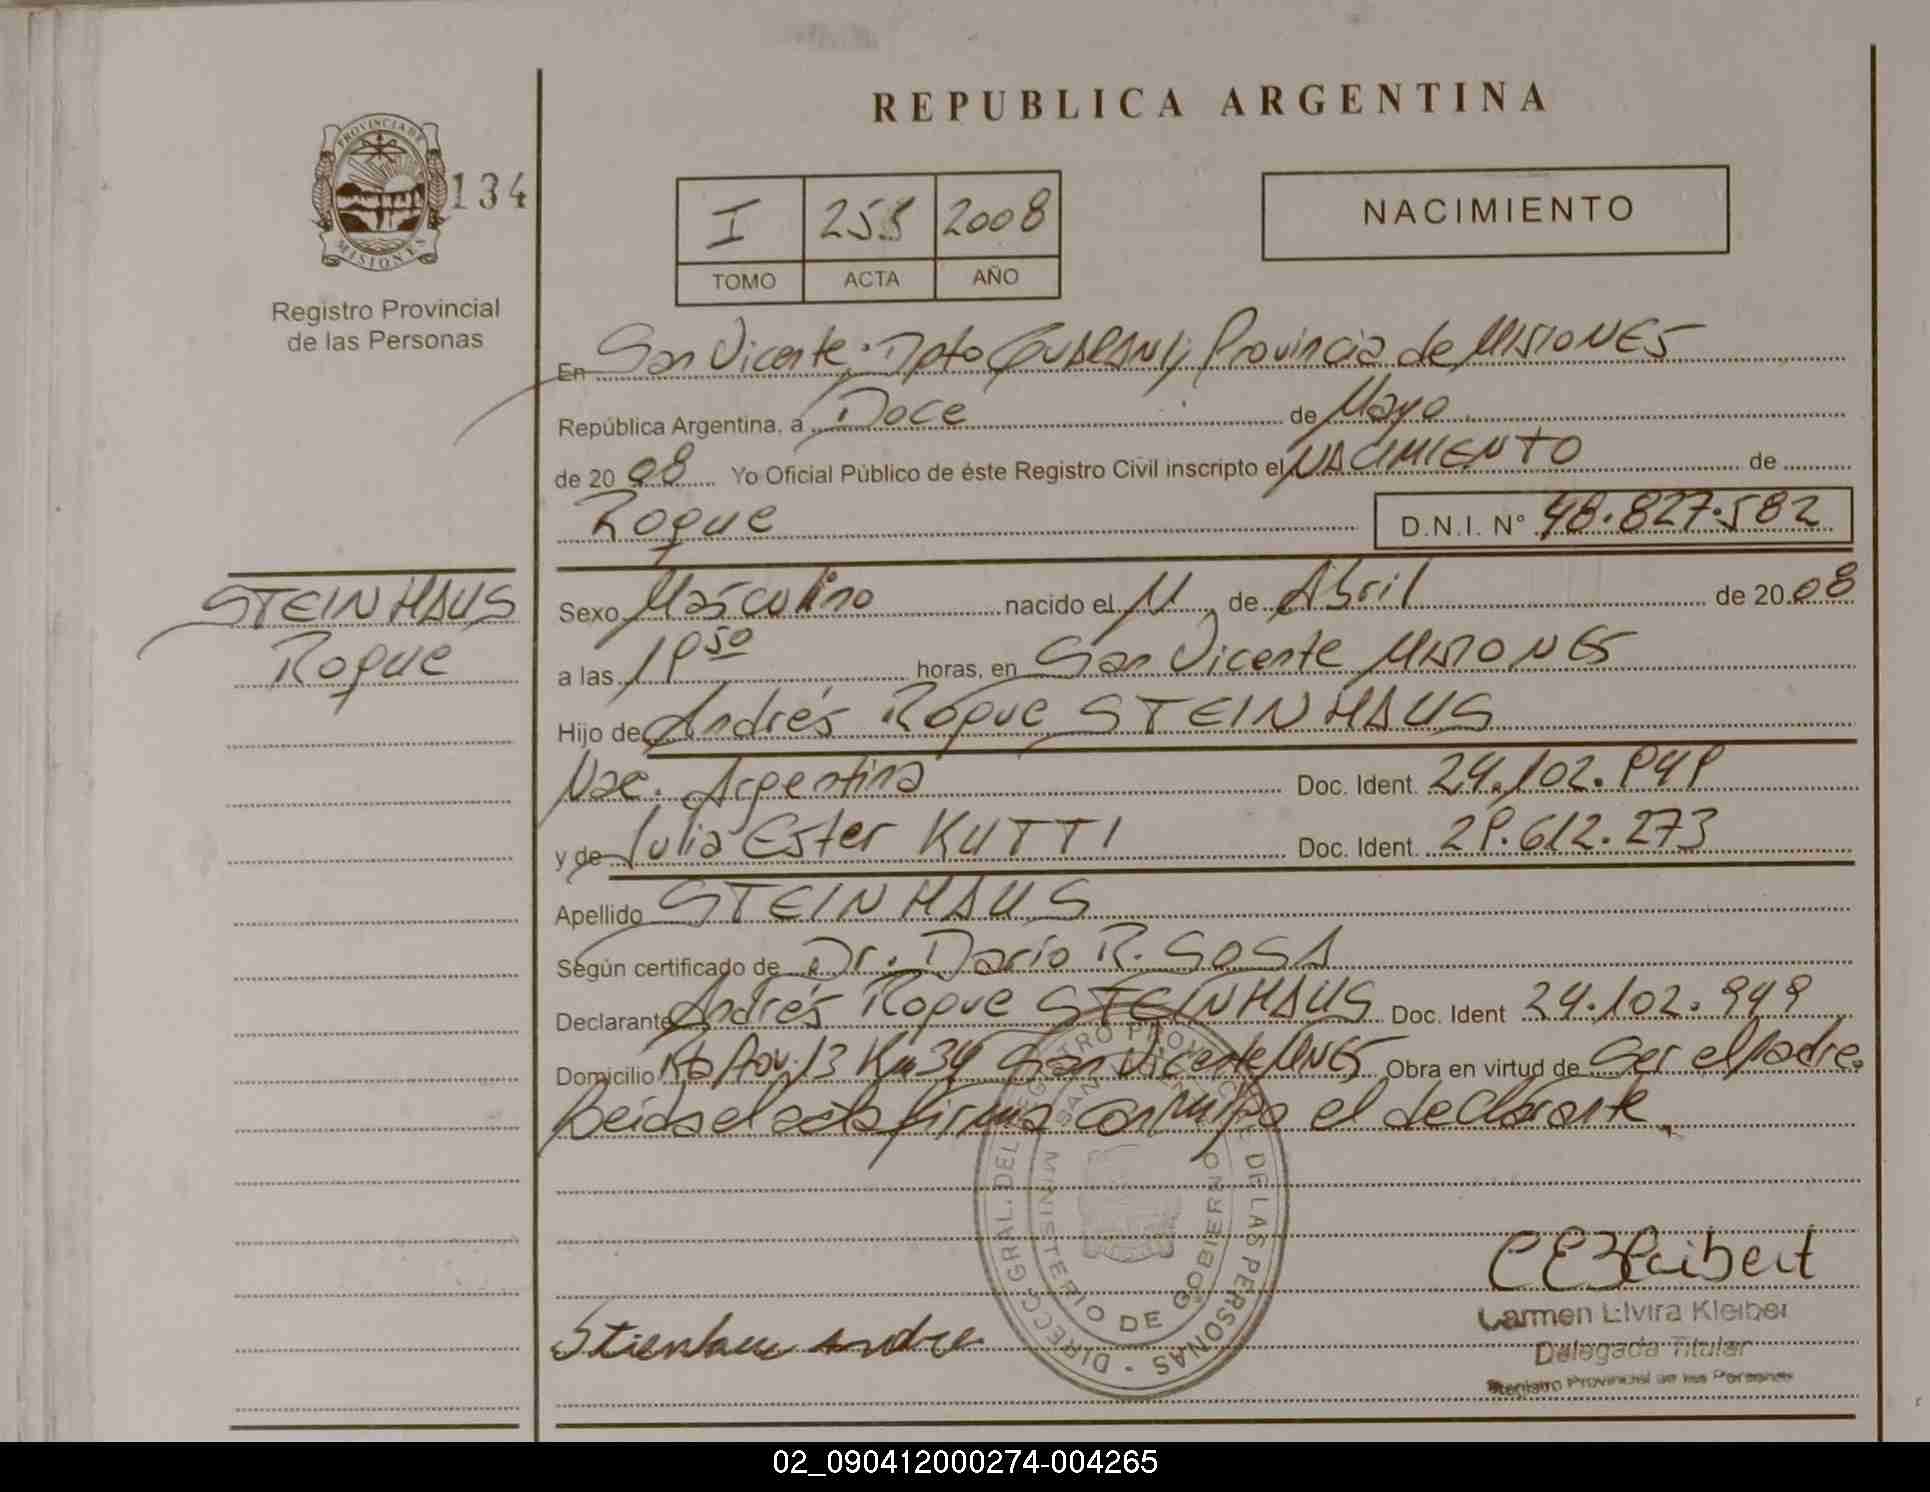 REPUBLICA ARGENTINA
PROVINCIA DE
MISIONES
134
Registro Provincial
de las Personas
I 258 2008
TOMO ACTA AÑO
NACIMIENTO
En San Vicente, Dpto GUARANI, Provincia de MISIONES
República Argentina, a Doce de Mayo
de 20 08 Yo Oficial Público de éste Registro Civil inscripto el NACIMIENTO de
Roque D.N.I. N° 48.827.582
STEINHAUS
Roque
Sexo Masculino nacido el 11 de Abril de 20 08
a las 19 50 horas, en San Vicente MISIONES
Hijo de Andrés Roque STEINHAUS
Nac. Argentina Doc. Ident. 24.102.949
y de Julia Ester KUTTI Doc. Ident. 29.612.273
Apellido STEINHAUS
Según certificado de Dr. Darío R. SOSA
Declarante Andrés Roque STEINHAUS Doc. Ident 24.102.949
Domicilio Rta Prov. 13 Km 34 San Vicente MNES Obra en virtud de Ser el padre.
Leida el acta firma conmigo el declarante.
DIRECC. GRAL. DEL REGISTRO PROVINCIAL DE LAS PERSONAS
MINISTERIO DE GOBIERNO
SAN
Carmen Elvira Kleiber
Delegada Titular
Registro Provincial de las Personas
02_090412000274-004265